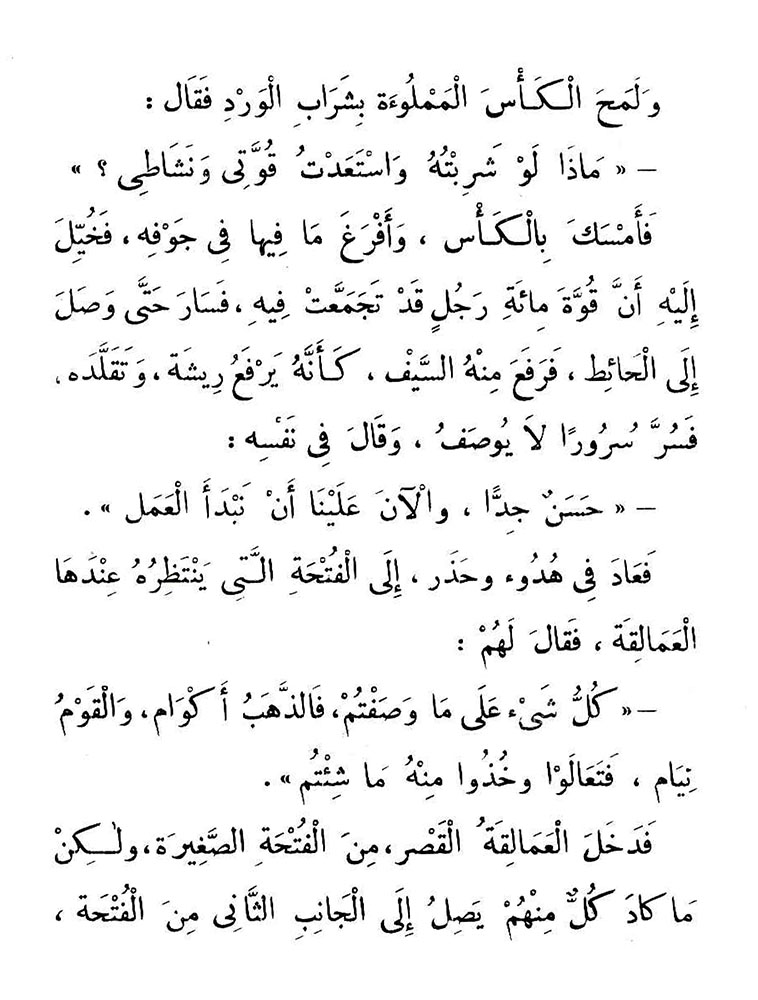 وَلَمَحَ الْـكَـأْسَ الْمَمْلُوءَة بِشَرَابِ الْوَرْدِ فَقَال :
— « مَاذَا لَوْ شَرِبْتُهُ وَاسْتَعَدْتُ قُوَّتِى وَنَشَاطِى ؟ »
فَأَمْسَكَ بِالْـكَـأْس ، وَأَفْرَغَ مَا فِيها فِى جَوْفِه ، فَخُيِّلَ
إِلَيْهِ أَنَّ قُوَّةَ مِائَةِ رَجُلٍ قَدْ تَجَمَّعَتْ فِيهِ ، فَسَارَ حَتَّى وَصَلَ
إِلَى الْحَائِط ، فَرَفَعَ مِنْهُ السَّيْف ، كَـأَنَّهُ يَرْفَعُ رِيشَة ، وَتَقَلَّدَه ،
فَسُرَّ سُرُورًا لاَ يُوصَفُ ، وَقَالَ فِى نَفْسِه :
— « حَسَنٌ جِدًّا ، والْآنَ عَلَيْنَا أَنْ نَبْدَأَ الْعَمَل » .
فَعَادَ فِى هُدُوء وحَذَر ، إِلَى الْفُتْحَةِ الَّـتِى يَنْتَظِرُهُ عِنْدَهَا
الْعَمَالِقَة ، فَقالَ لَهُمْ :
— « كُلُّ شَىْء عَلَى مَا وَصَفْتُمْ، فَالذَّهَبُ أَكْوَام، وَالْقَوْمُ
نِيَام ، فَتَعَالَوْا وخُذُوا مِنْهُ مَا شِئْتُم » .
فَدَخَلَ الْعَمَالِقَةُ الْقَصْر ، مِنَ الْفُتْحَةِ الصَّغِيرَة ، ولٰـكِنْ
مَا كادَ كُلٌّ مِنْهُمْ يَصِلُ إِلَى الْجَانِبِ الثَّانِى مِنَ الْفُتْحَة ،